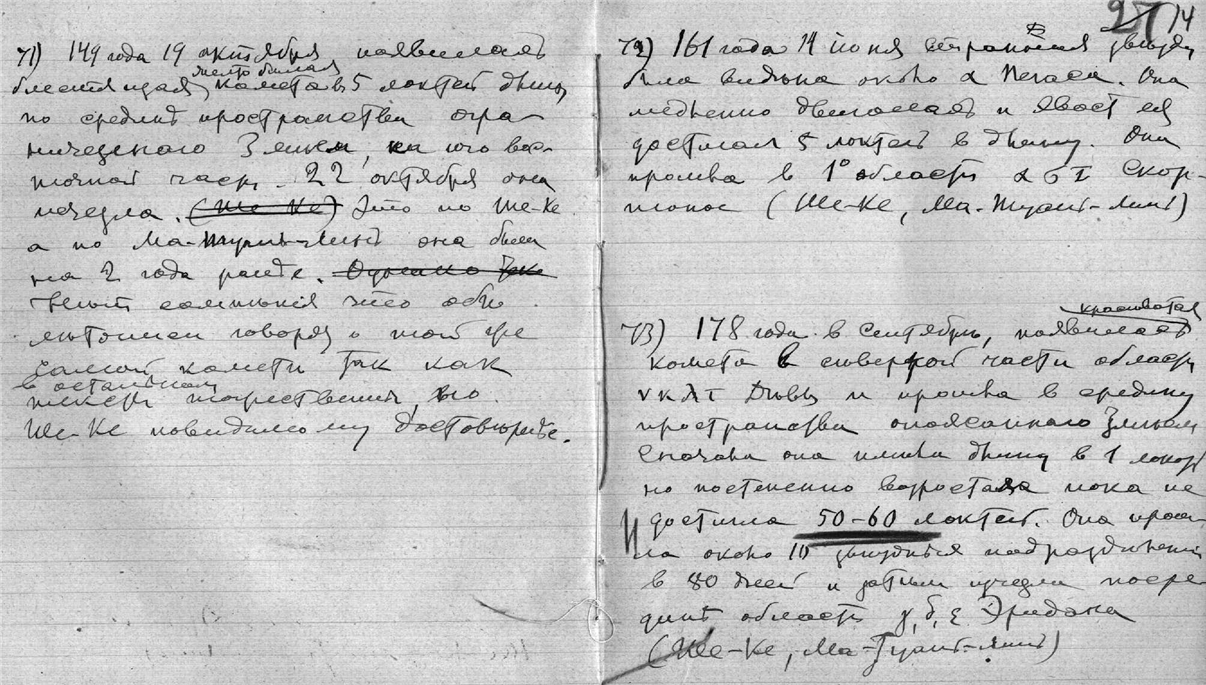 71) 149 года 19 октября появилась
блестящая метно белая комета в 5 локтей длины
по срединѣ пространства огра-
ниченного Змѣем, на юго вос-
точной части. 22 октября она
исчезла. (Ше-Ке) Это по Ше-Ке
а по Ма-Туань-Линь она была
на 2 года раньше. Однако
сомнѣнія что оба
лѣтописи говорят о той же
самой кометѣ так как
в остальном тексты тожественны, но
Ше-Ке повидимому достовѣрнѣе.
27 14
72) 161 года 14 іюня странная звѣзда
была видѣна около α Пегаса. Она
медленно двигалась и хвост ея
достигал 5 локтей в длину. Она
прошла в 1° области α σ τ Скор-
піона (Ше-Ке, Ма-Туант-Линт)
73) 178 года в Сентябрѣ, появилась красноватая
комета в сѣверной части области
ν κ λ τ Дѣвы и прошла в средину
пространства опоясанного Змѣем
Сначала она имѣла длину в 1 локоть
но постепенно возростала пока не
достигла 50-60 локтей. Она прош-
ла около 10 звѣздных подраздѣленій
в 80 дней и затѣм исчезла посре-
динѣ области γ, δ, ε Эридана
(Ше-Ке, Ма-Туант-Линт)